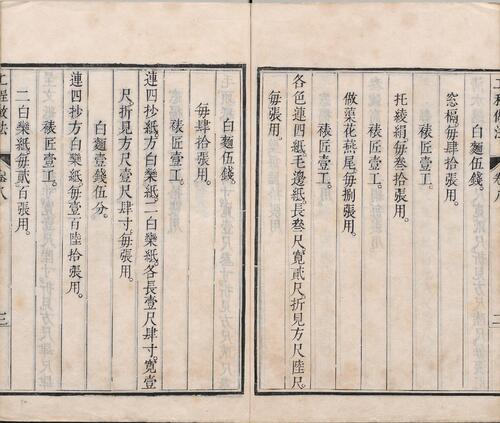 工程做法 卷八 二
白麵伍錢。
窓槅每肆拾張用。
裱匠壹工。
托綾絹每叁拾張用。
裱匠壹工。
做菉花燕尾每捌張用。
裱匠壹工。
各色連四紙毛邊紙長叁尺寬貳尺折見方尺陸尺。
每張用。
白麵伍錢。
每肆拾張用。
裱匠壹工。
連四抄紙方白欒紙二白欒紙各長壹尺肆寸寬壹
尺折見方尺壹尺肆寸每張用。
白麵壹錢伍分。
裱匠壹工。
連四抄方白欒紙每壹百陸拾張用。
裱匠壹工。
二白欒紙每貳百張用。
工程做法 卷八 三